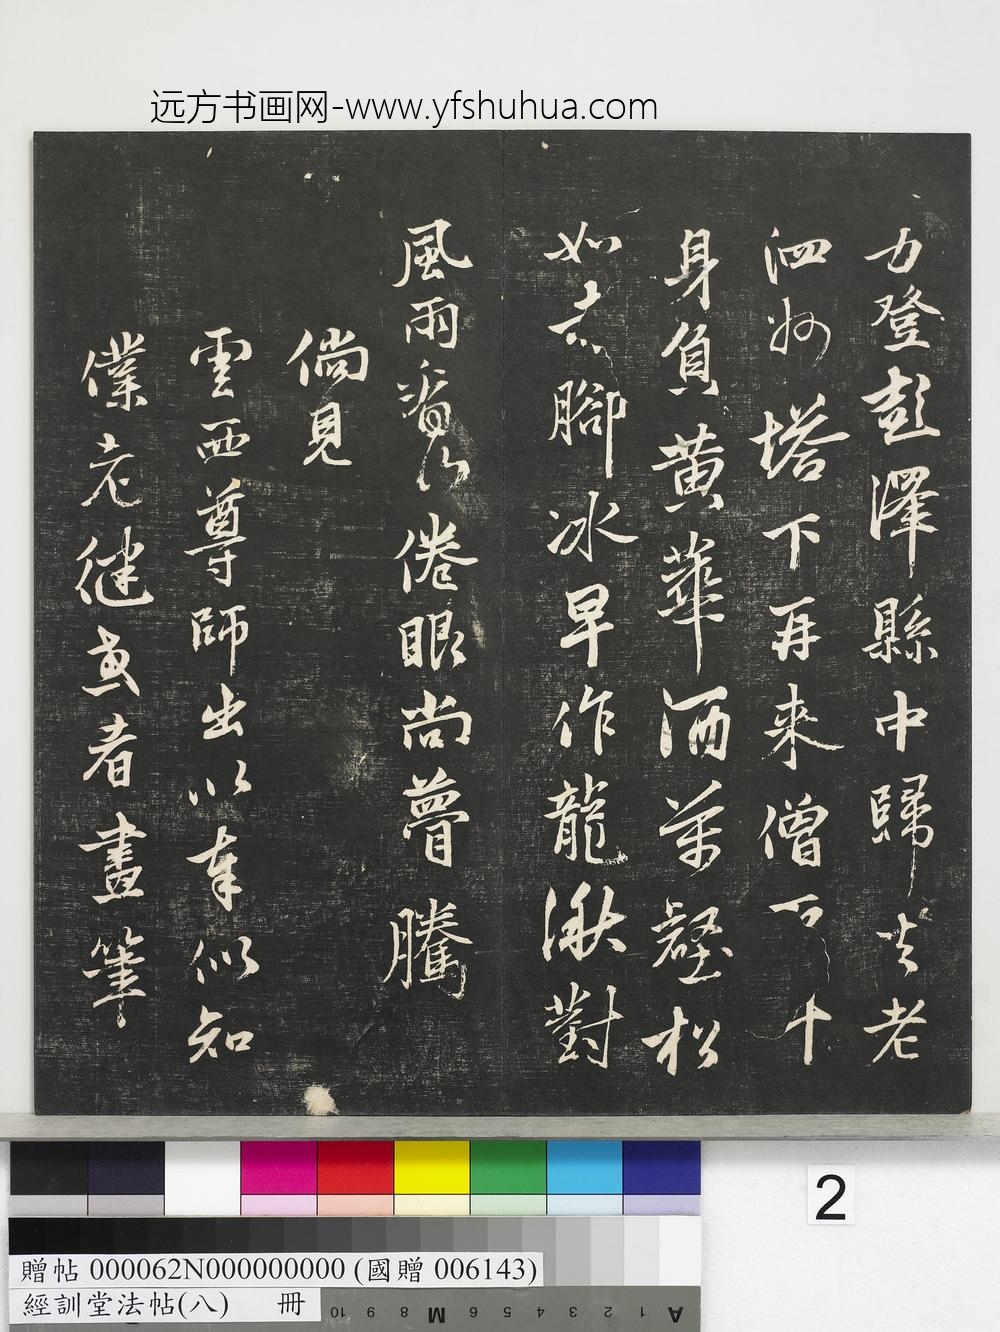 远方书画网-www.yfshuhua.com
力登彭澤縣中歸去老
泗州塔下再來僧百千
身負黃華洒萬壑松
如赤腳冰早作龍湫對
風雨看山倦眼尚瞢騰
倘見
雲西尊師出以奉似知
僕老健画者畫筆
2
贈帖 000062N000000000 (國贈 006143)
經訓堂法帖(八) 冊
10 9 8 M 6 5 4 3 2 1 A